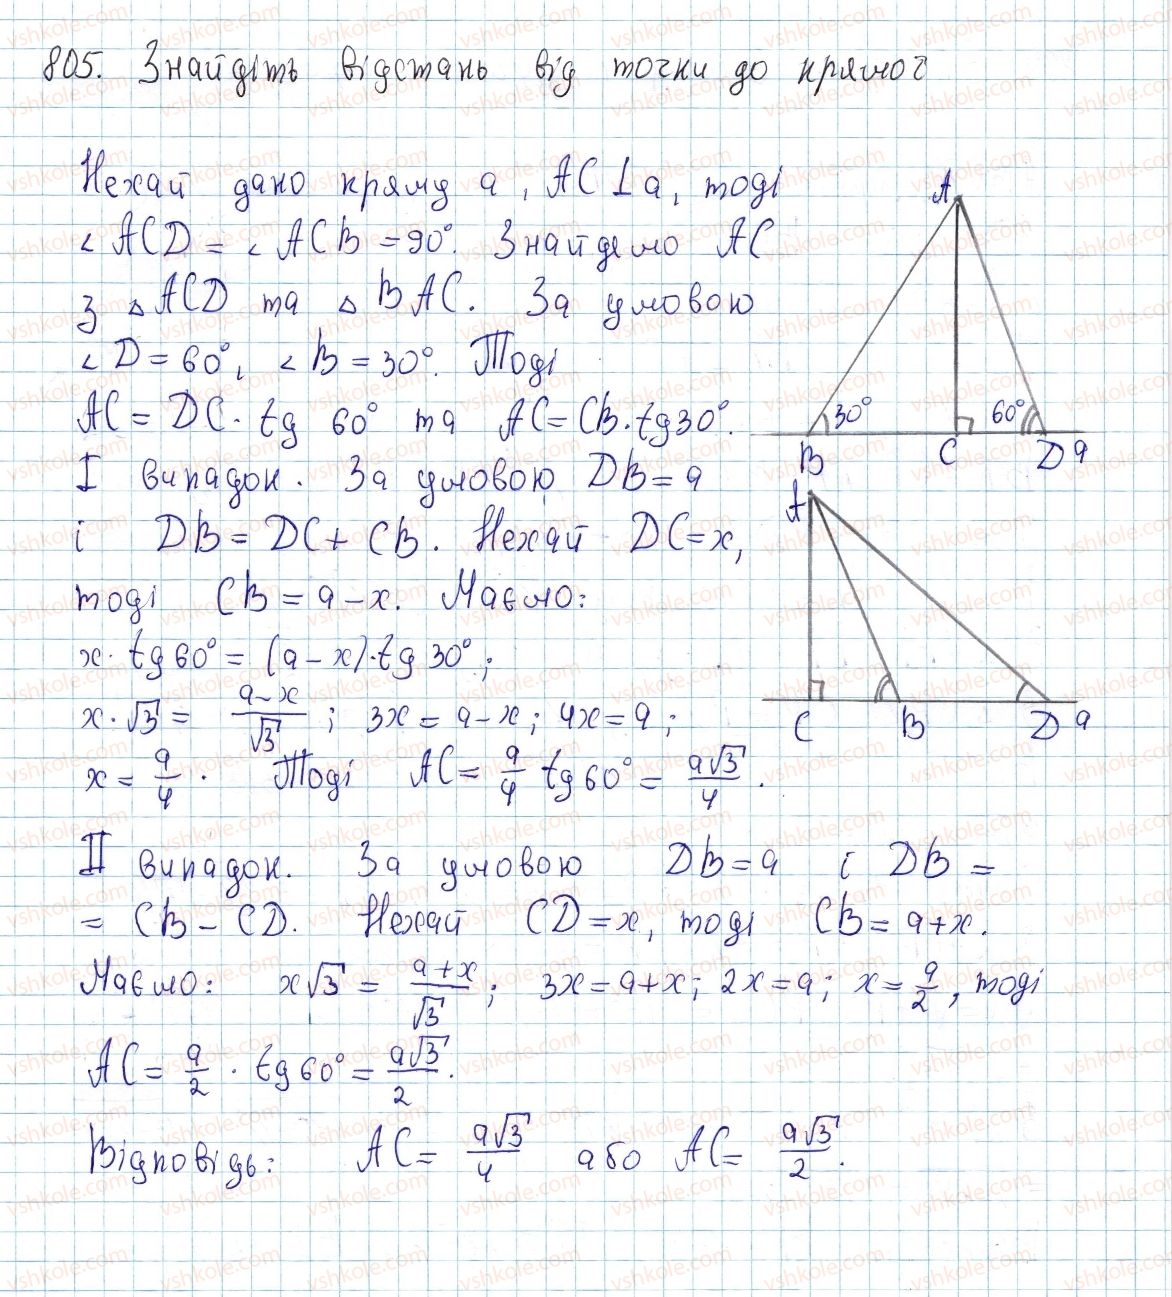 805. Знайдіть відстань від точки до прямої
Нехай дано пряму a, AC⊥a, тоді
∠ACD = ∠ACB = 90°. Знайдемо AC
з △ACD та △BAC. За умовою
∠D = 60°, ∠B = 30°. Тоді
AC = DC · tg 60° та AC = CB · tg 30°.
I випадок. За умовою DB = a
і DB = DC + CB. Нехай DC = x,
тоді CB = a – x. Маємо:
x · tg 60° = (a – x) · tg 30°;
x · √3 = (a – x)/√3; 3x = a – x; 4x = a;
x = a/4. Тоді AC = a/4 tg 60° = a√3/4.
II випадок. За умовою DB = a і DB =
= CB – CD. Нехай CD = x, тоді CB = a + x.
Маємо: x√3 = (a + x)/√3; 3x = a + x; 2x = a; x = a/2, тоді
AC = a/2 · tg 60° = a√3/2.
Відповідь: AC = a√3/4 або AC = a√3/2.
A
30° 60°
B C D a
A
C B D a
vshkole.com